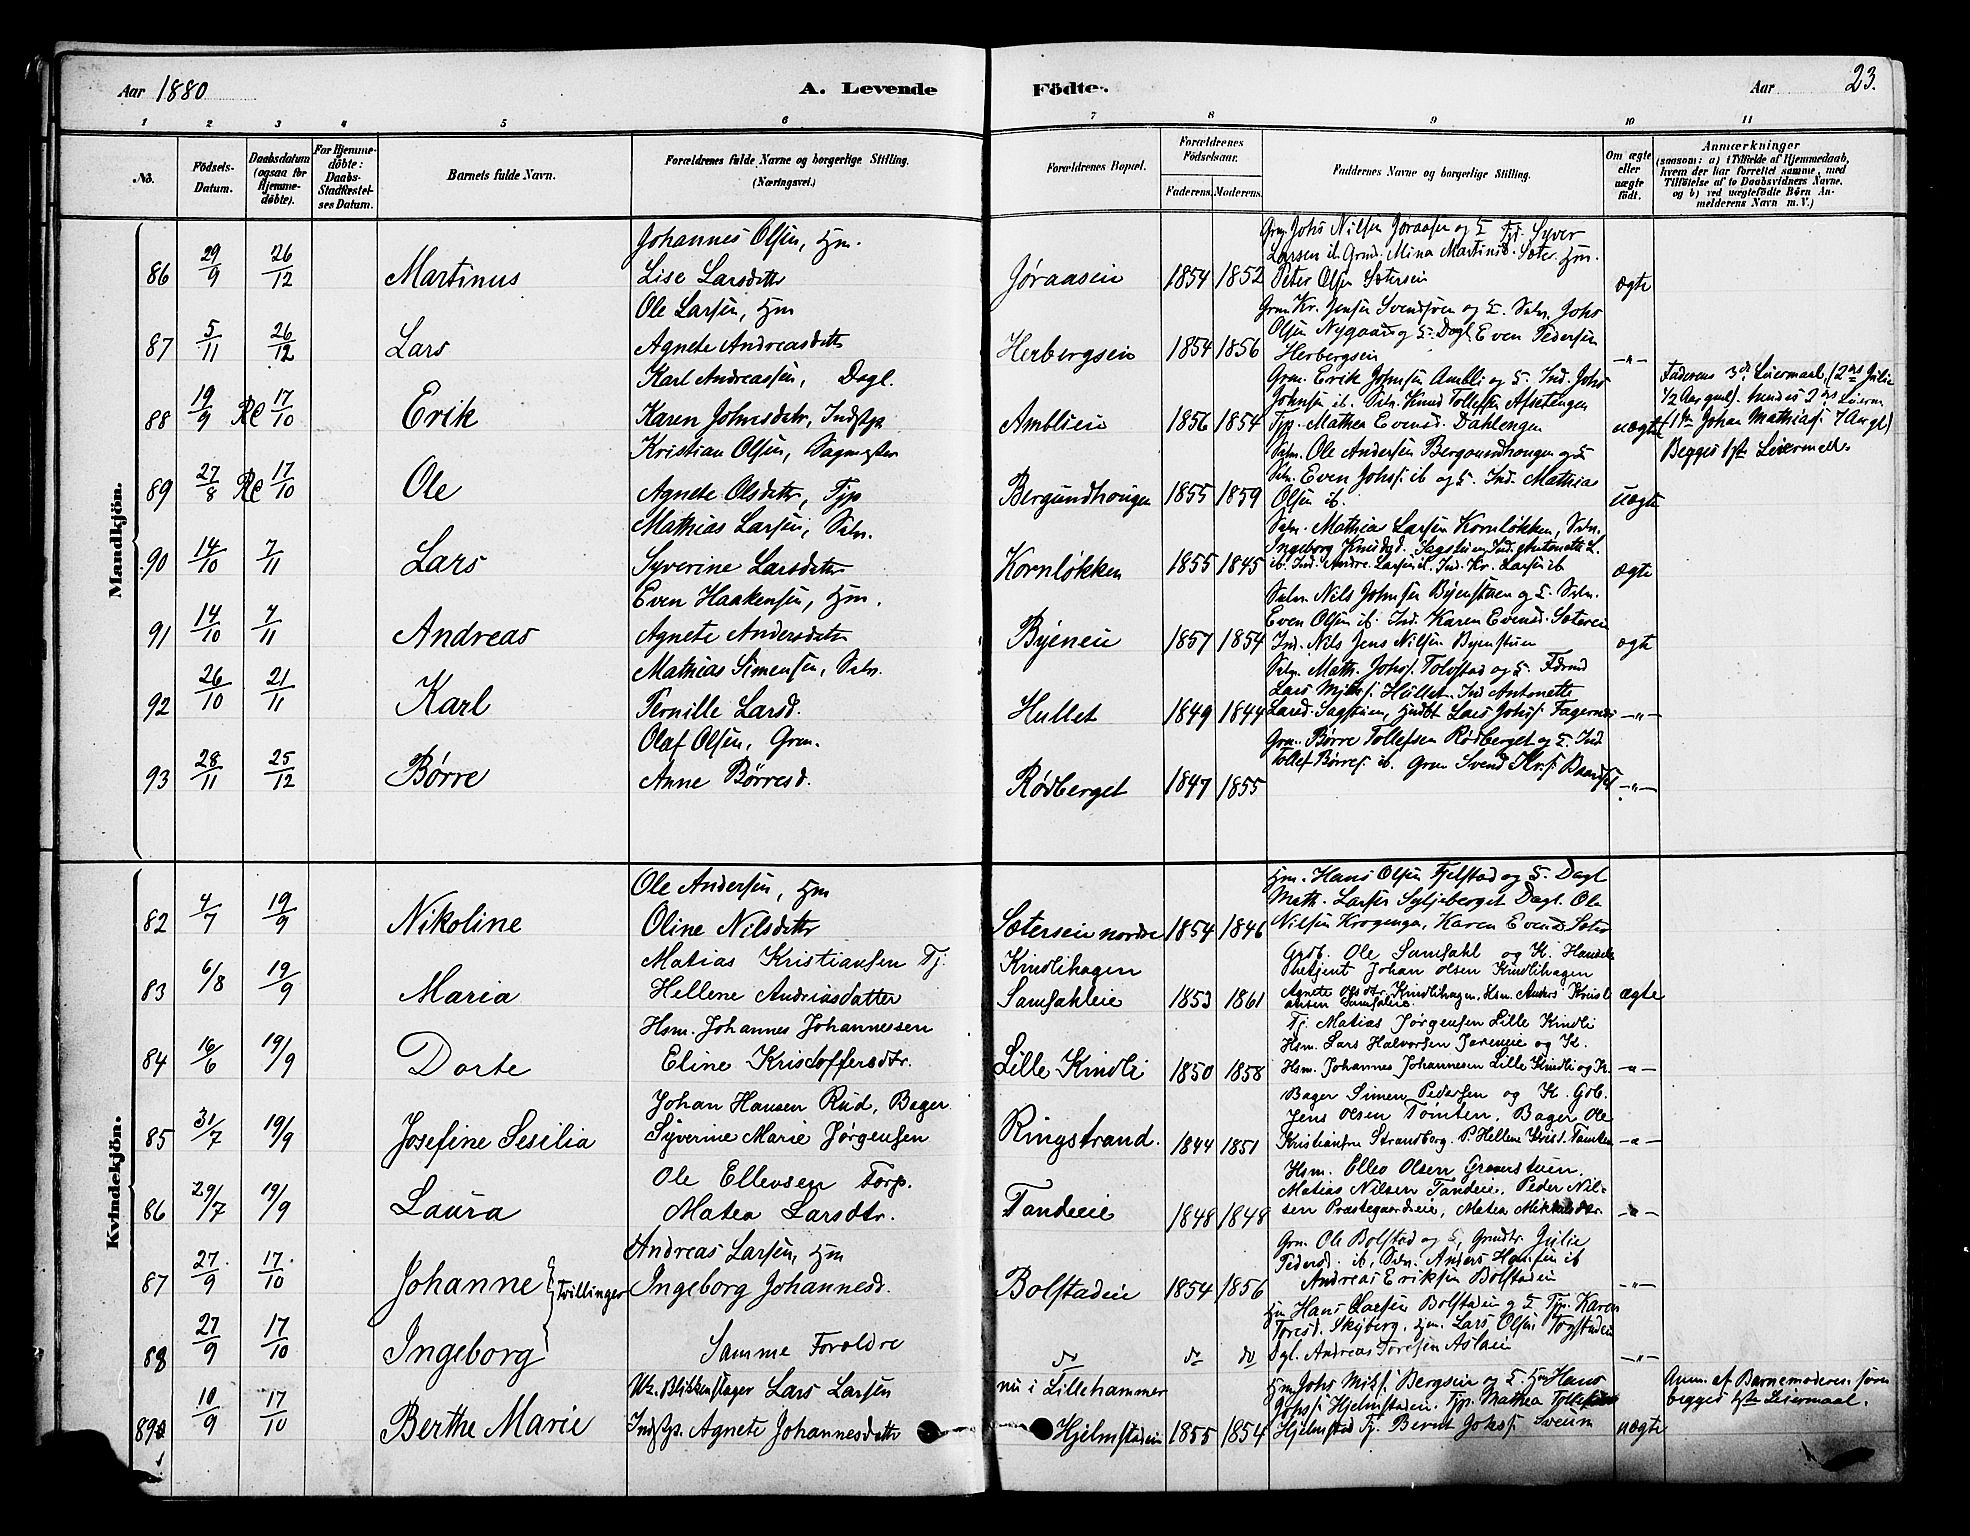 Aar 1880
A. Levende
Födte.
Aar
23.
1 2 3 4 5 6 7 8 9 10 11
No.
Födsels-
Datum.
Daabsdatum
(ogsaa for
Hjemme-
döbte).
For Hjemme-
döbte:
Daabs-
Stadfæstel-
ses Datum.
Barnets fulde Navn.
Forældrenes fulde Navne og borgerlige Stilling.
(Næringsvei.)
Forældrenes Bopæl.
Forældrenes
Födselsaar.
Faderens. Moderens.
Faddernes Navne og borgerlige Stilling.
Om ægte
eller
uægte
födt.
Anmærkninger
(saasom: a) i Tilfælde af Hjemmedaab,
hvem der har forrettet samme, med
Tilföielse af to Daabsvidners Navne,
og b) ved uægtefödte Börn An-
melderens Navn m. V.)
Mandkjön.
86 29/9 26/12 Martinus
Johannes Olsen, Hm.
Lise Larsdattr
Jøraaseie 1854 1852
Grm. Johs Nilsen Jøraasen og
Larsen ib. Mina
Peter Olsen Sætereie
ægte
87 5/11 26/12 Lars
Ole Larsen, Hm
Agnete Andreasdattr
Herbergseie 1854 1856
Olsen Nygaard og Even Pedersen
Herbergseie
-"-
88 19/9 17/10 Erik
Karl Andreassen, Dagl.
Karen Johnsdatr, Indstp.
Amblieie 1856 1854
Grm. Erik Johnsen Ambli og Ind. Johs
Johnsen ib. Knud Tollefsen
Tjp. Mathea Evensd. Dahlengen
uægte
Faderens 3die Leiermaal, (2det Julie
Johan Mathias
Begges 1ste Leiermaal.
89 27/8 17/10 Ole
Kristian Olsen, Sagmester
Agnete Olsdattr, Tjp
Bergundhougen 1855 1859
Selv. Ole Andersen Bergundhougen og
Selv. Even Johs. ib og Ind. Mathias
Olsen ib.
uægte
90 14/10 7/11 Lars
Mathias Larsen, Selv.
Syverine Larsdattr
Kornløkken 1855 1845
Selv. Mathias Larsen Kornløkken, Selv.
Ingeborg Sagstuen Ind. Antonette L.
ib. Ind. Andr. Larsen ib. Ind. Kr. Larsen ib
ægte
91 14/10 7/11 Andreas
Even Haakensen, Hm.
Agnete Andersdattr
Byeneie 1857 1854
Selv. Nils Johnsen Byenstuen og Selv.
Even Olsen ib. Ind. Karen Evensd. Sæteren
Ind. Nils Jens Nilsen Byenstuen
ægte
92 26/10 21/11 Karl
Mathias Simensen, Selv.
Pernille Larsd.
Hullet 1849 1844
Selv. Math. Johs. Tolvstad og
Lars Hullet. Ind Antonette
Larsd. Sagstuen, Lars Johs. Fagernes
-"-
93 28/11 25/12 Børre
Olaf Olsen, Grm.
Anne Børresd.
Rødberget 1847 1855
Grm. Børre Tollefsen Rødberget og Ind
Tollef Børres. ib. Grm Svend
-"-
Kvindekjön.
82 4/7 19/9 Nikoline
Ole Andersen, Hm
Oline Nilsdattr
Sætereie nordre 1854 1846
Hm. Hans Olsen Fjelstad og Dagl
Math. Larsen Syljeberget Dagl. Ole
Nilsen Krogengen, Karen Evensd Sæter
83 6/8 19/9 Maria
Matias Kristiansen Tj.
Hellene Andriasdatter
Kindlihagen
Samsahleie 1853 1861
Grdb. Ole Samsahl og K. Handels
betjent Johan Olsen Kindlihagen
Agnete Olsdtr. Kindlihagen, Hsm. Anders Kristi
ansen Samsahleie
ægte
84 16/6 19/9 Dorte
Hsm. Johannes Johannessen
Eline Kristoffersdtr.
Lille Kindli 1850 1858
Tj. Matias Jørgensen Lille Kindli
Hsm. Lars Halvorsen og K.
Hsm. Johannes Johannesen Lille Kindli og K.
-"-
85 31/7 19/9 Josefine Sesilia
Johan Hansen Rud, Bager
Syverine Marie Jørgensen
Ringstrand. 1844 1851
Bager Simen Pedersen og K. Gb.
Jens Olsen Tømten, Bager Ole
Kristiansen Strandborg. P. Hellene Krist. Tømten
-"-
86 29/7 19/9 Laura
Ole Ellevsen Torp.
Matea Larsdtr.
Tandeeie 1848 1848
Hsm. Ellev Olsen Graverstuen.
Matias Nilsen Tandeie, Peder Nil-
sen Præstegaardeie, Matea Mikkelsdtr.
-"-
87 27/9 17/10 Johanne
Tvillinger
Andreas Larsen, Hm
Ingeborg Johannesd.
Bolstadeie 1854 1856
Grm. Ole Bolstad og Julie
Pedersd. ib, Selv. Anders Hansen ib
Andreas Eriksen Bolstadeie
-"-
88 27/9 17/10 Ingeborg
Samme Foreldre
do do do
Hm Hans Larsen Bolstadeie og Tjp. Karen
Toresd. Skyberg. Hm. Lars Olsen
Dgl. Andreas Toresen Aslaeie
-"-
89 10/9 17/10 Berthe Marie
Uz. Blikkenslager Lars Larsen
Indstp. Agnete Johannesdattr
nu i Lillehammer
Hjelmstadeie 1855 1854
Hm Johs Bergseie og Hm Hans
Johs. Hjelmstadeie. Tjp. Mathea
Hjelmstad Tj. Bernt Johs. Sveum
uægte
Anm. af Barnemoderen som
begges 1ste Leiermaal.